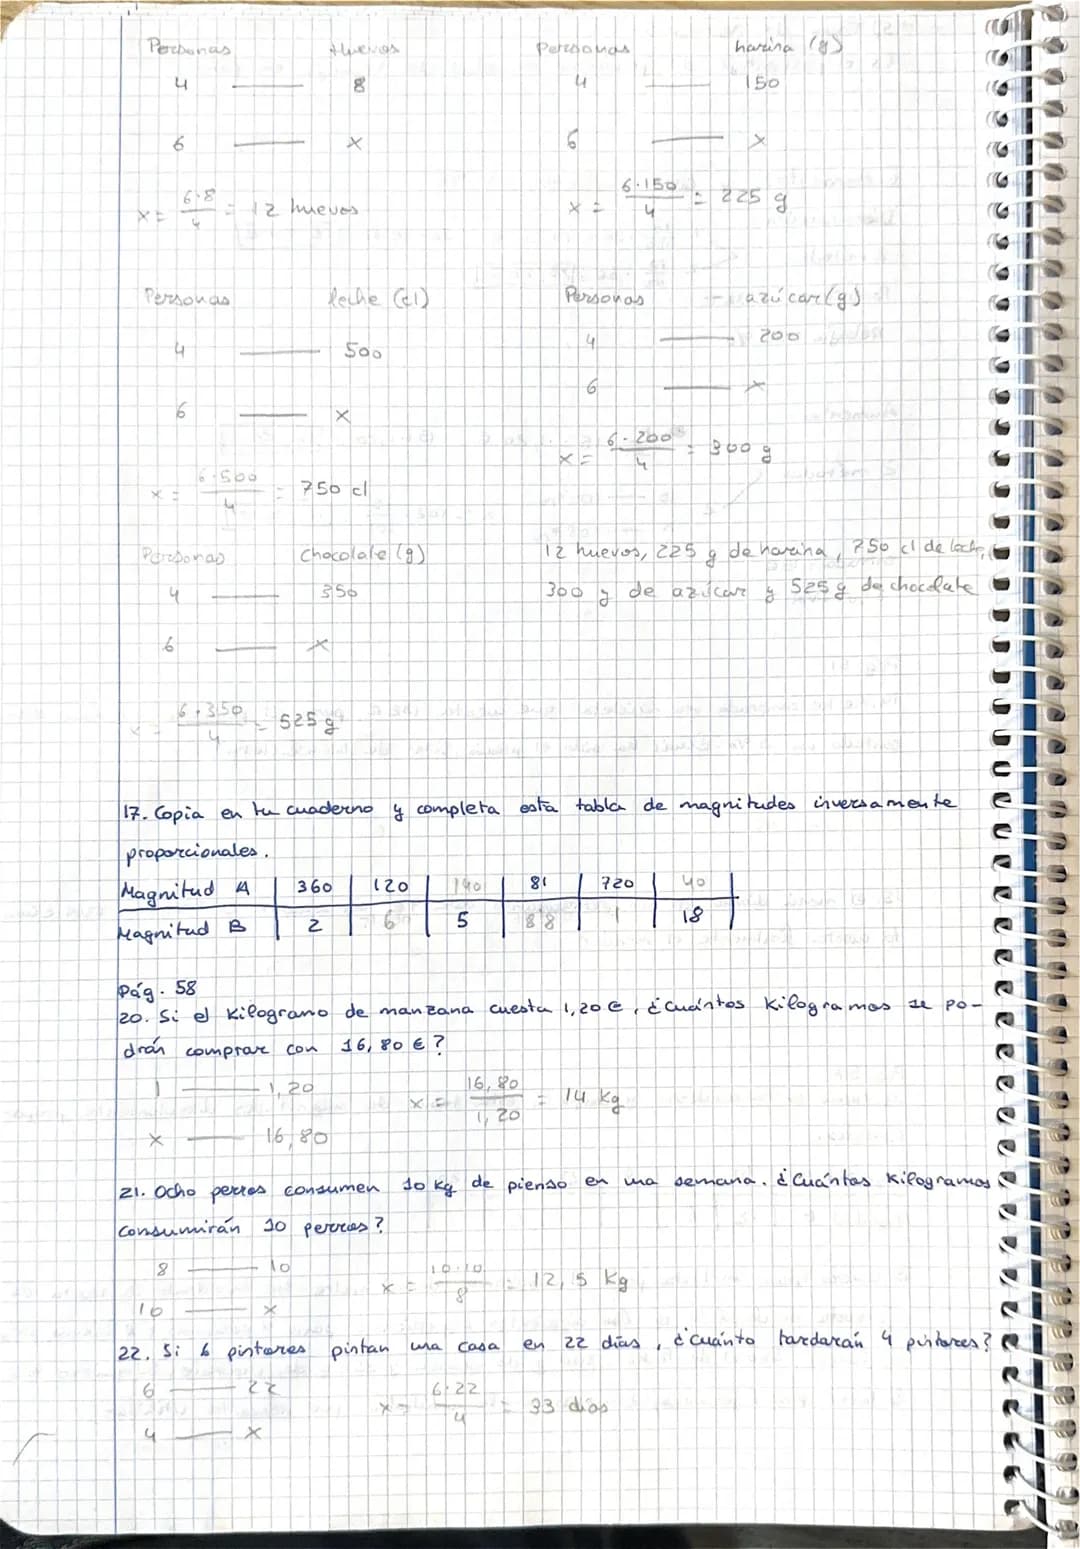 Personas Huevos
4 —— 8
6 —— x
x = 6·8/4 = 12 huevos
Personas harina (g)
4 —— 150
6 —— x
x = 6·150/4 = 225 g
Personas leche (cl)
4 —— 500
6 —— x
x = 6·500/4 = 750 cl
Personas azúcar (g)
4 —— 200
6 —— x
x = 6·200/4 = 300 g
Personas chocolate (g)
4 —— 350
6 —— x
x = 6·350/4 = 525 g
12 huevos, 225 g de harina, 750 cl de leche,
300 g de azúcar y 525 g de chocolate
17. Copia en tu cuaderno y completa esta tabla de magnitudes inversamente
proporcionales.
Magnitud A 360 120 140 81 720 40
Magnitud B 2 6 5 88 1 18
Pág. 58
20. Si el kilogramo de manzana cuesta 1,20 €, ¿Cuántos kilogramos se po-
drán comprar con 16,80 €?
1 —— 1,20
x —— 16,80
x = 16,80/1,20 = 14 kg
21. Ocho perros consumen 10 kg de pienso en una semana. ¿Cuántos kilogramos
consumirán 10 perros?
8 —— 10
10 —— x
x = 10·10/8 = 12,5 kg
22. Si 6 pintores pintan una casa en 22 días, ¿cuánto tardarán 4 pintores?
6 —— 22
4 —— x
x = 6·22/4 = 33 días